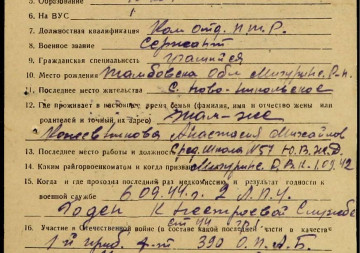 5. Образование
6. На ВУС
7. Должностная квалификация Ком отд. П.Т.Р.
8. Военное звание Сержант
9. Гражданская специальность учащийся
10. Место рождения Тамбовска обл Мичуринс. Р-н
11. Последнее место жительства с. Ново-Никольское
12. Где проживает в настоящее время семья (фамилия, имя и отчество жены или
родителей и точный их адрес) Там-же
Анастасия Михайлов
13. Последнее место работы и должность Сред. школа №51 Ю.В.Ж.Д.
14. Каким райгорвоенкоматом и когда призван Мичуринс. Р.В.К. 1.09.42
15. Когда и где проходил последний раз медкомиссию и результат годности к
военной службе 6.09.44 г. 2 Л.П.У.
Годен к нестроевой службе
16. Участие в Отечественной войне (в составе какой последней части и в качестве
1й приб. ф-т 390 О.П.А.Б.